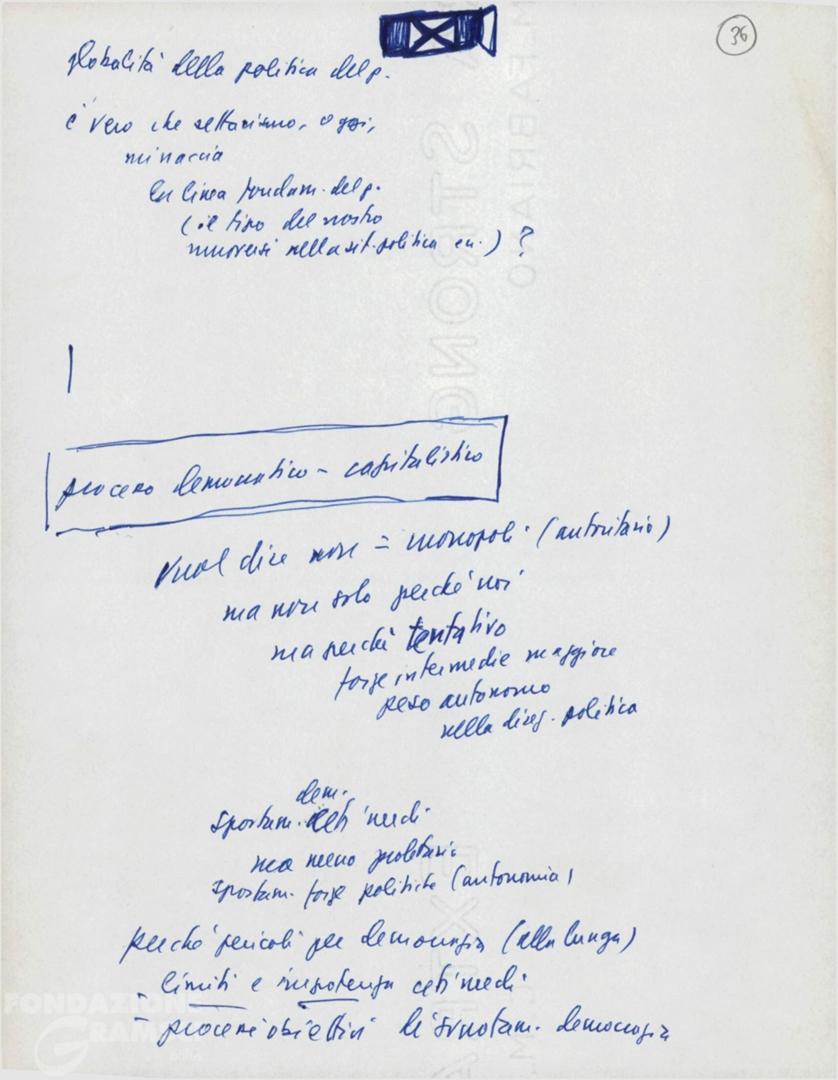 36
globalità della politica del p.
è vero che settarismo, oggi,
minaccia
la linea fondam. del p.
(il tipo del nostro
muoversi nella sit. politica ) ?
processo democratico - capitalistico
vuol dire non = monopoli (autoritario)
ma non solo perché noi
ma perché tentativo
forze intermedie maggiore
peso autonomo
nella direz. politica
dem.
spostam. ceti medi
ma meno proletario
spostam. forze politiche (autonomia)
perché pericoli per democrazia (alla lunga)
- limiti e impotenza ceti medi
- processi obiettivi di svuotam. democrazia
FONDAZIONE
GRAMSCI